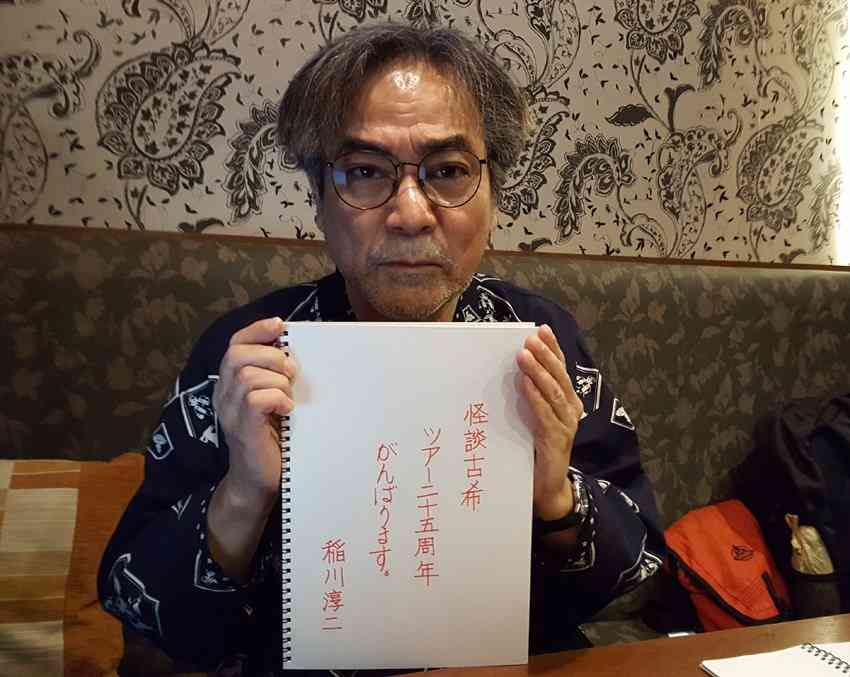 怪談古希
ツアー二十五周年
がんばります。
稲川淳二